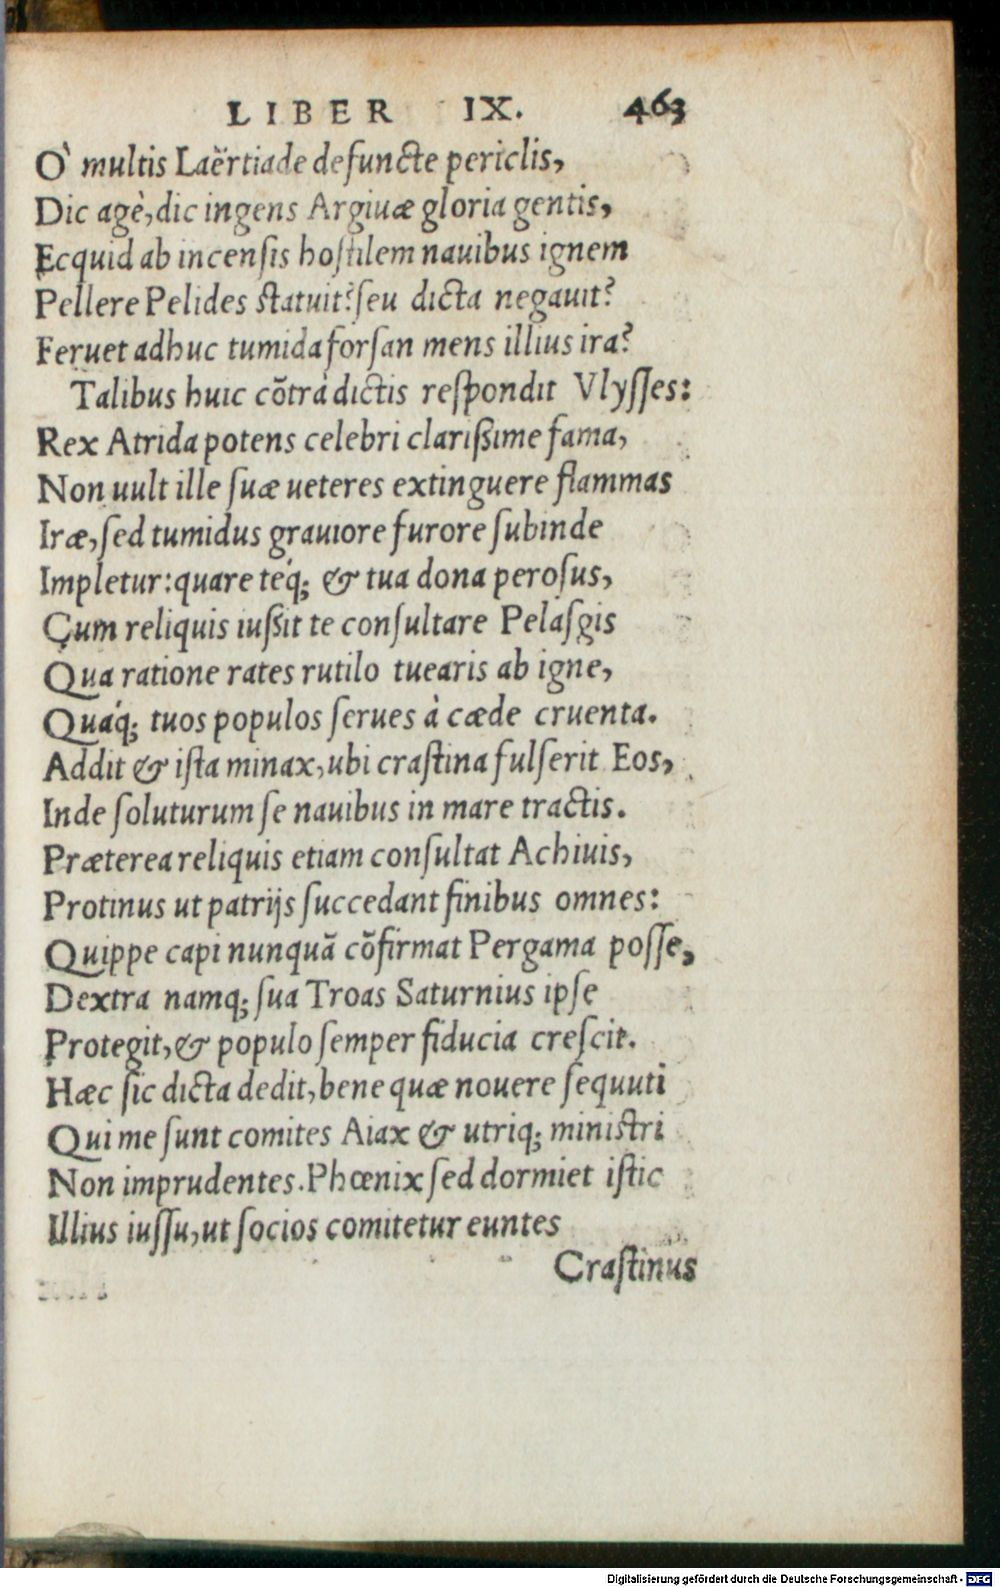 LIBER IX. 463
O` multis Laërtiade defuncte periclis,
Dic agè, dic ingens Argiuæ gloria gentis,
Ecquid ab incenſis hoſtilem nauibus ignem
Pellere Pelides ſtatuit? ſeu dicta negauit?
Feruet adhuc tumida forſan mens illius ira?
Talibus huic cõtrà dictis reſpondit Vlyſſes:
Rex Atrida potens celebri clarißime fama,
Non uult ille ſuæ ueteres extinguere flammas
Iræ, ſed tumidus grauiore furore ſubinde
Impletur: quare téq; & tua dona peroſus,
Cum reliquis iußit te conſultare Pelaſgis
Qua ratione rates rutilo tuearis ab igne,
Quáq; tuos populos ſerues à cæde cruenta.
Addit & iſta minax, ubi craſtina fulſerit Eos,
Inde ſoluturum ſe nauibus in mare tractis.
Præterea reliquis etiam conſultat Achiuis,
Protinus ut patrijs ſuccedant finibus omnes:
Quippe capi nunquã cõfirmat Pergama poſſe,
Dextra namq; ſua Troas Saturnius ipſe
Protegit, & populo ſemper fiducia creſcit.
Hæc ſic dicta dedit, bene quæ nouere ſequuti
Qui me ſunt comites Aiax & utriq; miniſtri
Non imprudentes. Phœnix ſed dormiet iſtic
Illius iuſſu, ut ſocios comitetur euntes
Craſtinus
Digitalisierung gefördert durch die Deutsche Forschungsgemeinschaft - DFG